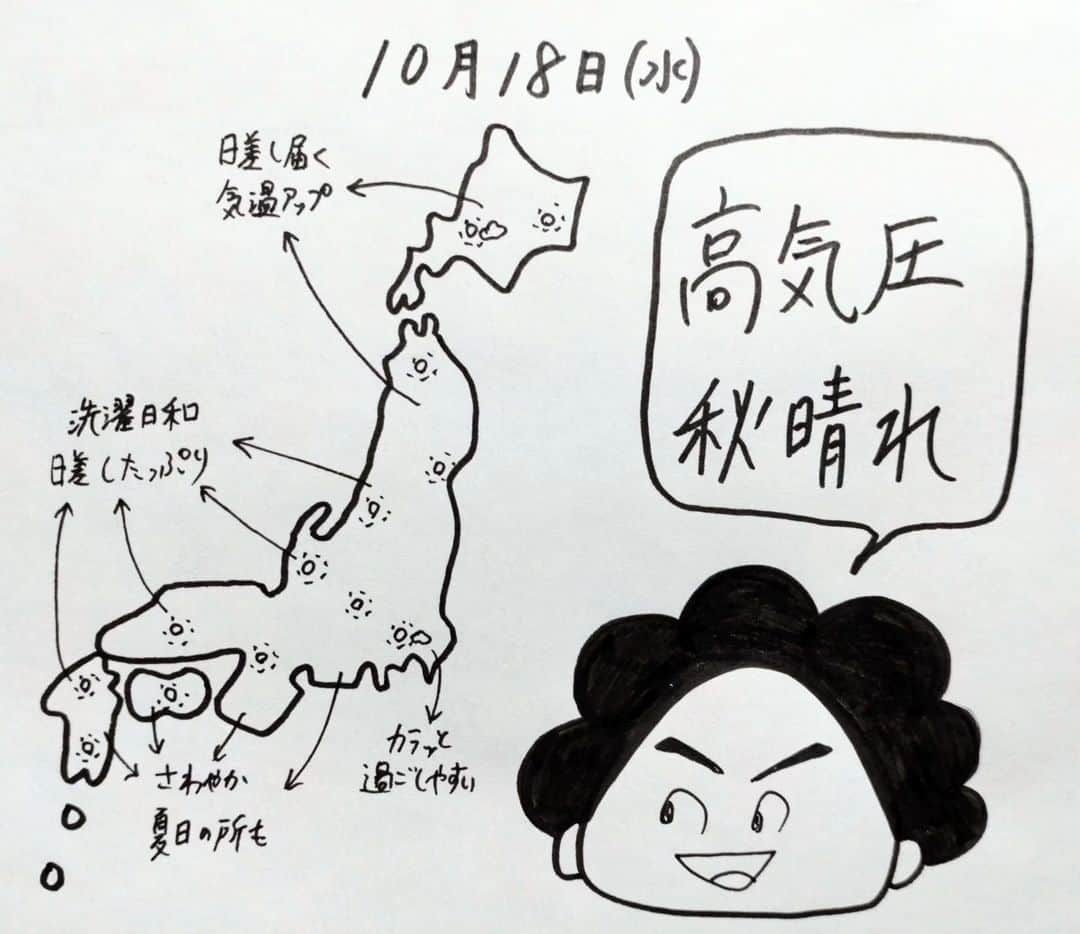 10月18日(水)
日差し届く
気温アップ
高気圧
秋晴れ
洗濯日和
日差したっぷり
カラッと
過ごしやすい
さわやか
夏日の所も